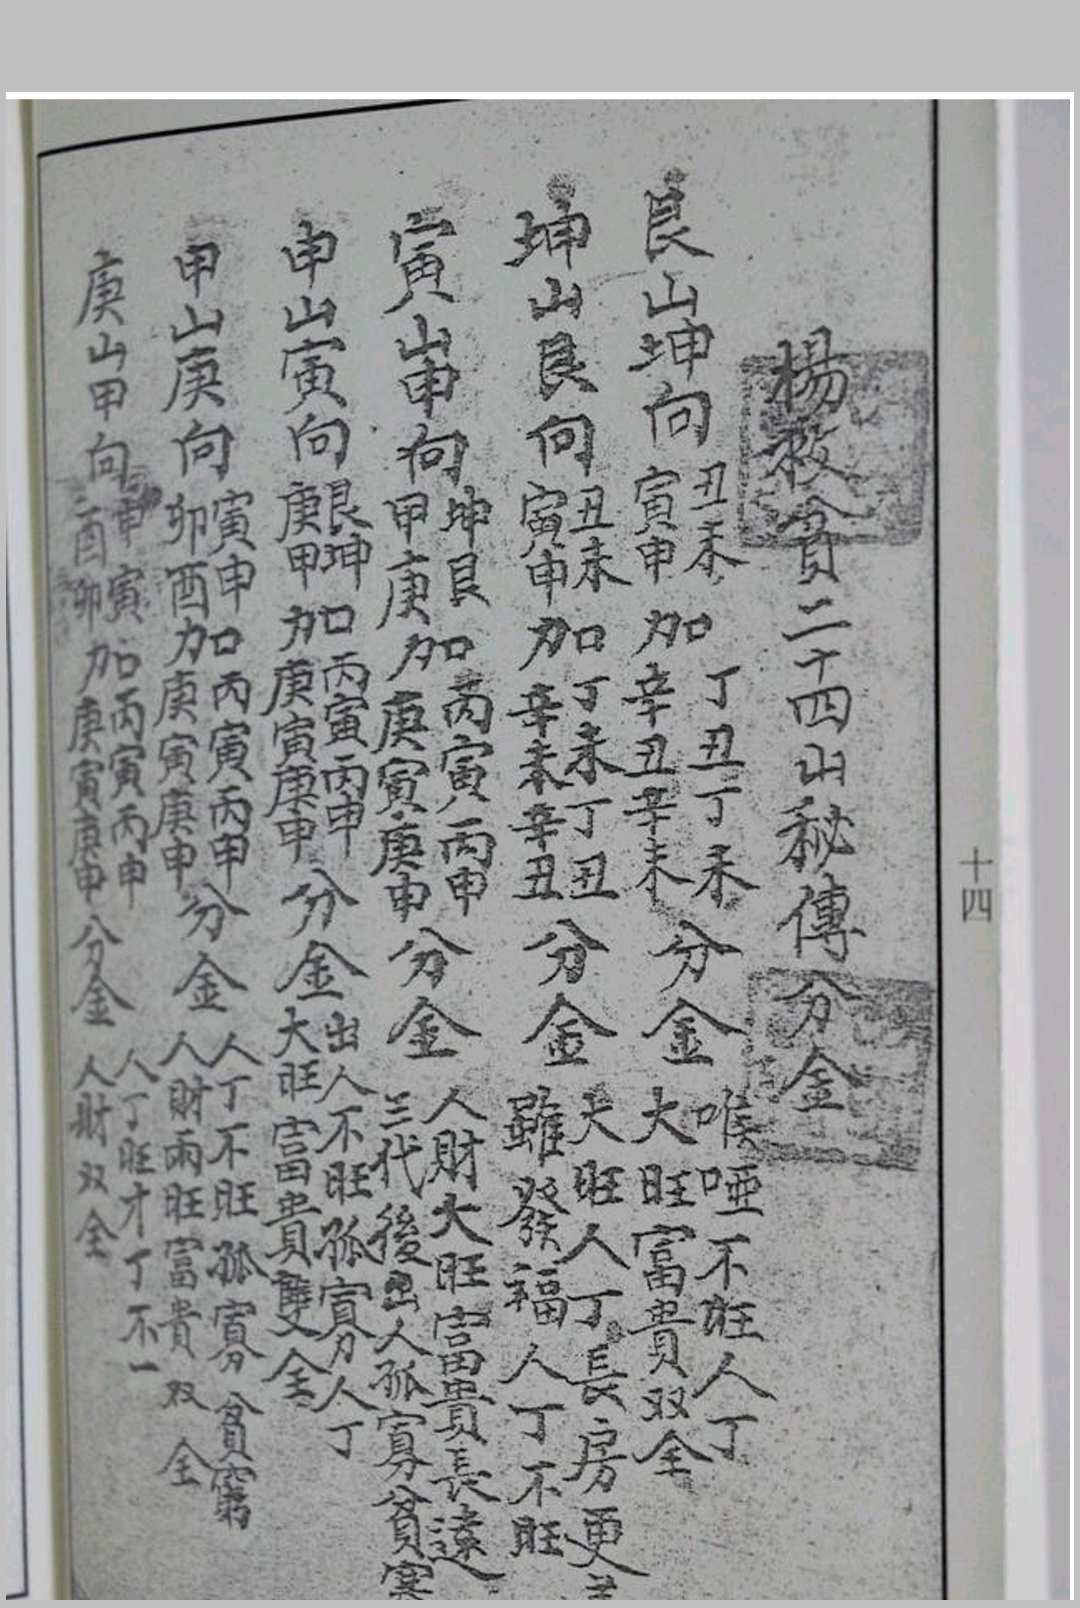 十四
楊救貧二十四山秘傳分金
艮山坤向 丑未 寅申 加 丁丑丁未 辛丑辛未 分金 喉啞不旺人丁 大旺富貴双全
坤山艮向 丑未 寅申 加 丁未丁丑 辛未辛丑 分金 大旺人丁長房更 雖發福人丁不旺
寅山申向 坤艮 甲庚 加 丙寅丙申 庚寅庚申 分金 人財大旺富貴長遠 三代後出人孤寡貧寒
申山寅向 艮坤 庚甲 加 丙寅丙申 庚寅庚申 分金 出人不旺孤寡人丁 大旺富貴雙全
甲山庚向 寅申 卯酉 加 丙寅丙申 庚寅庚申 分金 人丁不旺孤寡貧窮 人財兩旺富貴双全
庚山甲向 申寅 酉卯 加 丙寅丙申 庚寅庚申 分金 人丁旺才丁不一 人財双全